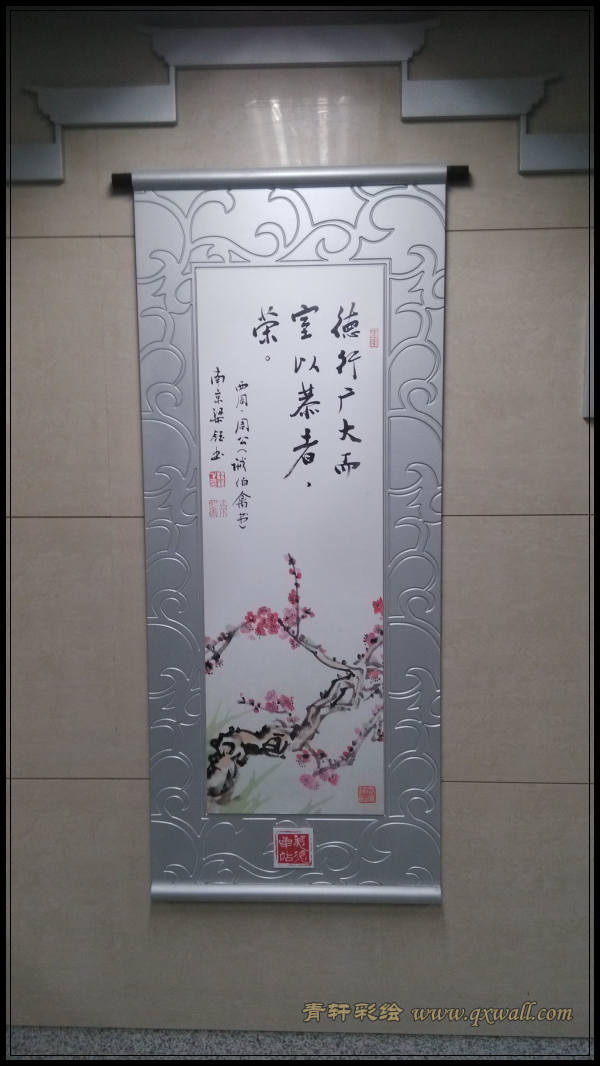 德行广大而
室以恭者，
荣。
西周·周公《诫伯禽书》
南京梁钰书
青轩彩绘 www.qxwall.com